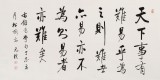 天下事有
難易乎為
之則難者
亦易矣不
為則易者
亦難矣